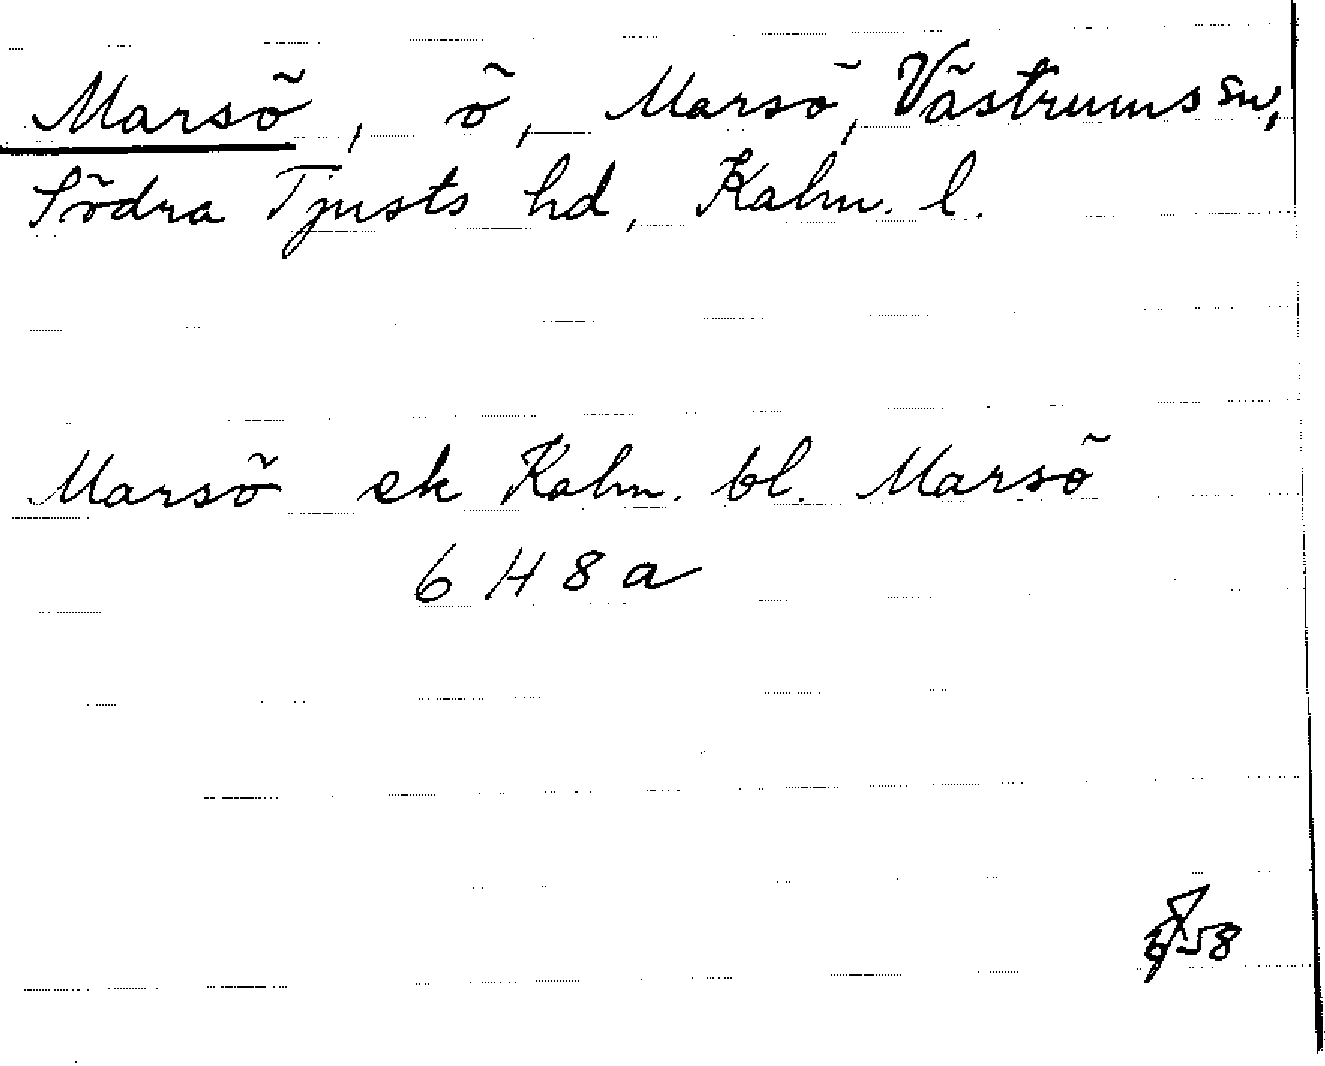 Marsö, ö, Marsö, Västrums sn,
Södra Tjusts hd, Kalm. l.
Marsö ek Kalm. bl. Marsö
6 H 8 a
58